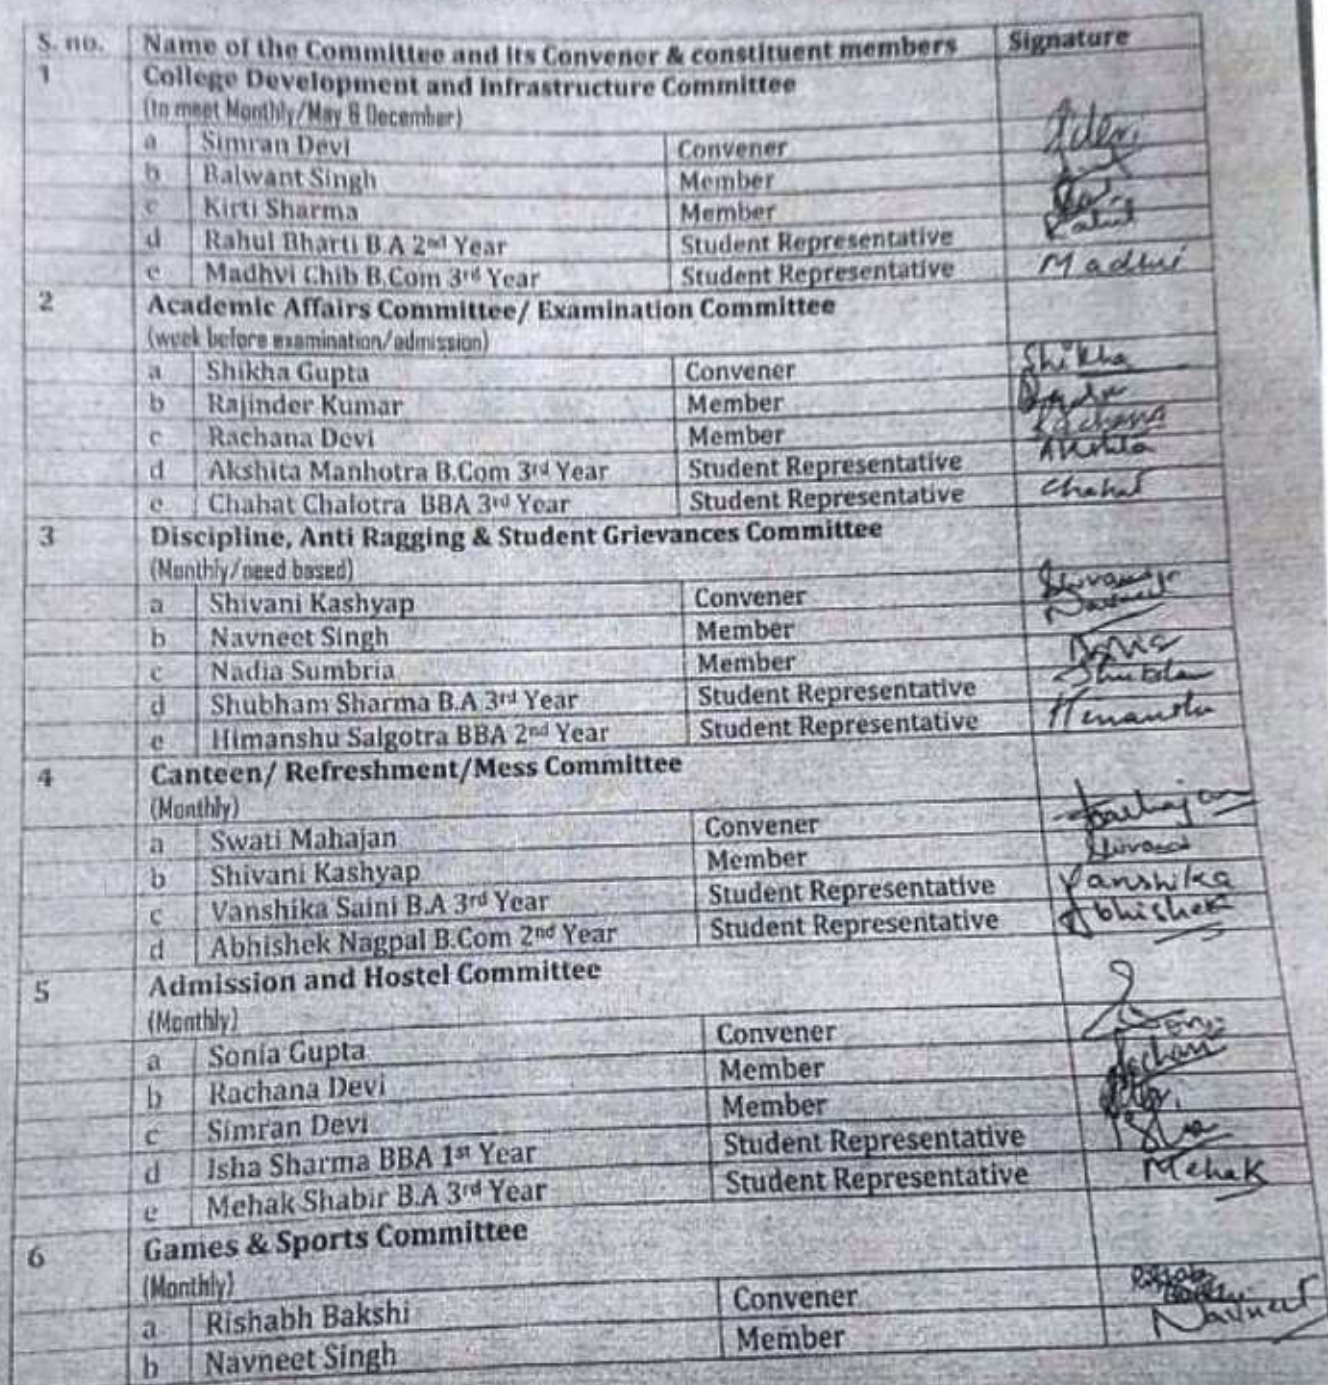 S. no. Name of the Committee and its Convener & constituent members Signature
1 College Development and Infrastructure Committee
(to meet Monthly/May & December)
a Simran Devi Convener
b Balwant Singh Member
c Kirti Sharma Member
d Rahul Bharti B.A 2nd Year Student Representative Rahul
e Madhvi Chib B.Com 3rd Year Student Representative Madhvi
2 Academic Affairs Committee/ Examination Committee
(week before examination/admission)
a Shikha Gupta Convener Shikha
b Rajinder Kumar Member
c Rachana Devi Member Rachana
d Akshita Manhotra B.Com 3rd Year Student Representative Akshita
e Chahat Chalotra BBA 3rd Year Student Representative Chahat
3 Discipline, Anti Ragging & Student Grievances Committee
(Monthly/need based)
a Shivani Kashyap Convener
b Navneet Singh Member Navneet
c Nadia Sumbria Member
d Shubham Sharma B.A 3rd Year Student Representative
e Himanshu Salgotra BBA 2nd Year Student Representative Himanshu
4 Canteen/ Refreshment/Mess Committee
(Monthly)
a Swati Mahajan Convener
b Shivani Kashyap Member
c Vanshika Saini B.A 3rd Year Student Representative Vanshika
d Abhishek Nagpal B.Com 2nd Year Student Representative Abhishek
5 Admission and Hostel Committee
(Monthly)
a Sonia Gupta Convener
b Rachana Devi Member
c Simran Devi Member
d Isha Sharma BBA 1st Year Student Representative Isha
e Mehak Shabir B.A 3rd Year Student Representative Mehak
6 Games & Sports Committee
(Monthly)
a Rishabh Bakshi Convener
b Navneet Singh Member Navneet